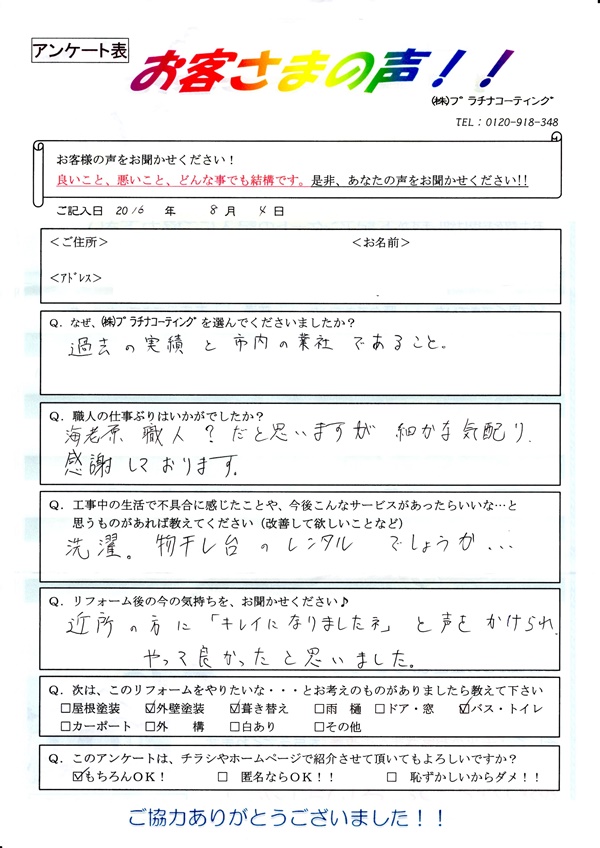 アンケート表
お客さまの声！！
㈱プラチナコーティング
TEL：0120-918-348
お客様の声をお聞かせください！
良いこと、悪いこと、どんな事でも結構です。是非、あなたの声をお聞かせください!!
ご記入日 2016 年 8 月 4 日
＜ご住所＞ ＜お名前＞
＜アドレス＞
Q．なぜ、㈱プラチナコーティングを選んでくださいましたか？
過去の実績と市内の業社であること。
Q．職人の仕事ぶりはいかがでしたか？
海老原 職人？だと思いますが 細かな気配り
感謝しております。
Q．工事中の生活で不具合に感じたことや、今後こんなサービスがあったらいいな…と
思うものがあれば教えてください（改善して欲しいことなど）
洗濯。物干し台のレンタル でしょうか...
Q．リフォーム後の今の気持ちを、お聞かせください♪
近所の方に「キレイになりましたネ」と声をかけられ
やって良かったと思いました。
Q．次は、このリフォームをやりたいな・・・とお考えのものがありましたら教えて下さい
□屋根塗装 ☑外壁塗装 ☑葺き替え □雨 樋 □ドア・窓 ☑バス・トイレ
□カーポート □外 構 □白あり □その他
Q．このアンケートは、チラシやホームページで紹介させて頂いてもよろしいですか？
☑もちろんOK！ □ 匿名ならOK！！ □ 恥ずかしいからダメ！！
ご協力ありがとうございました！！